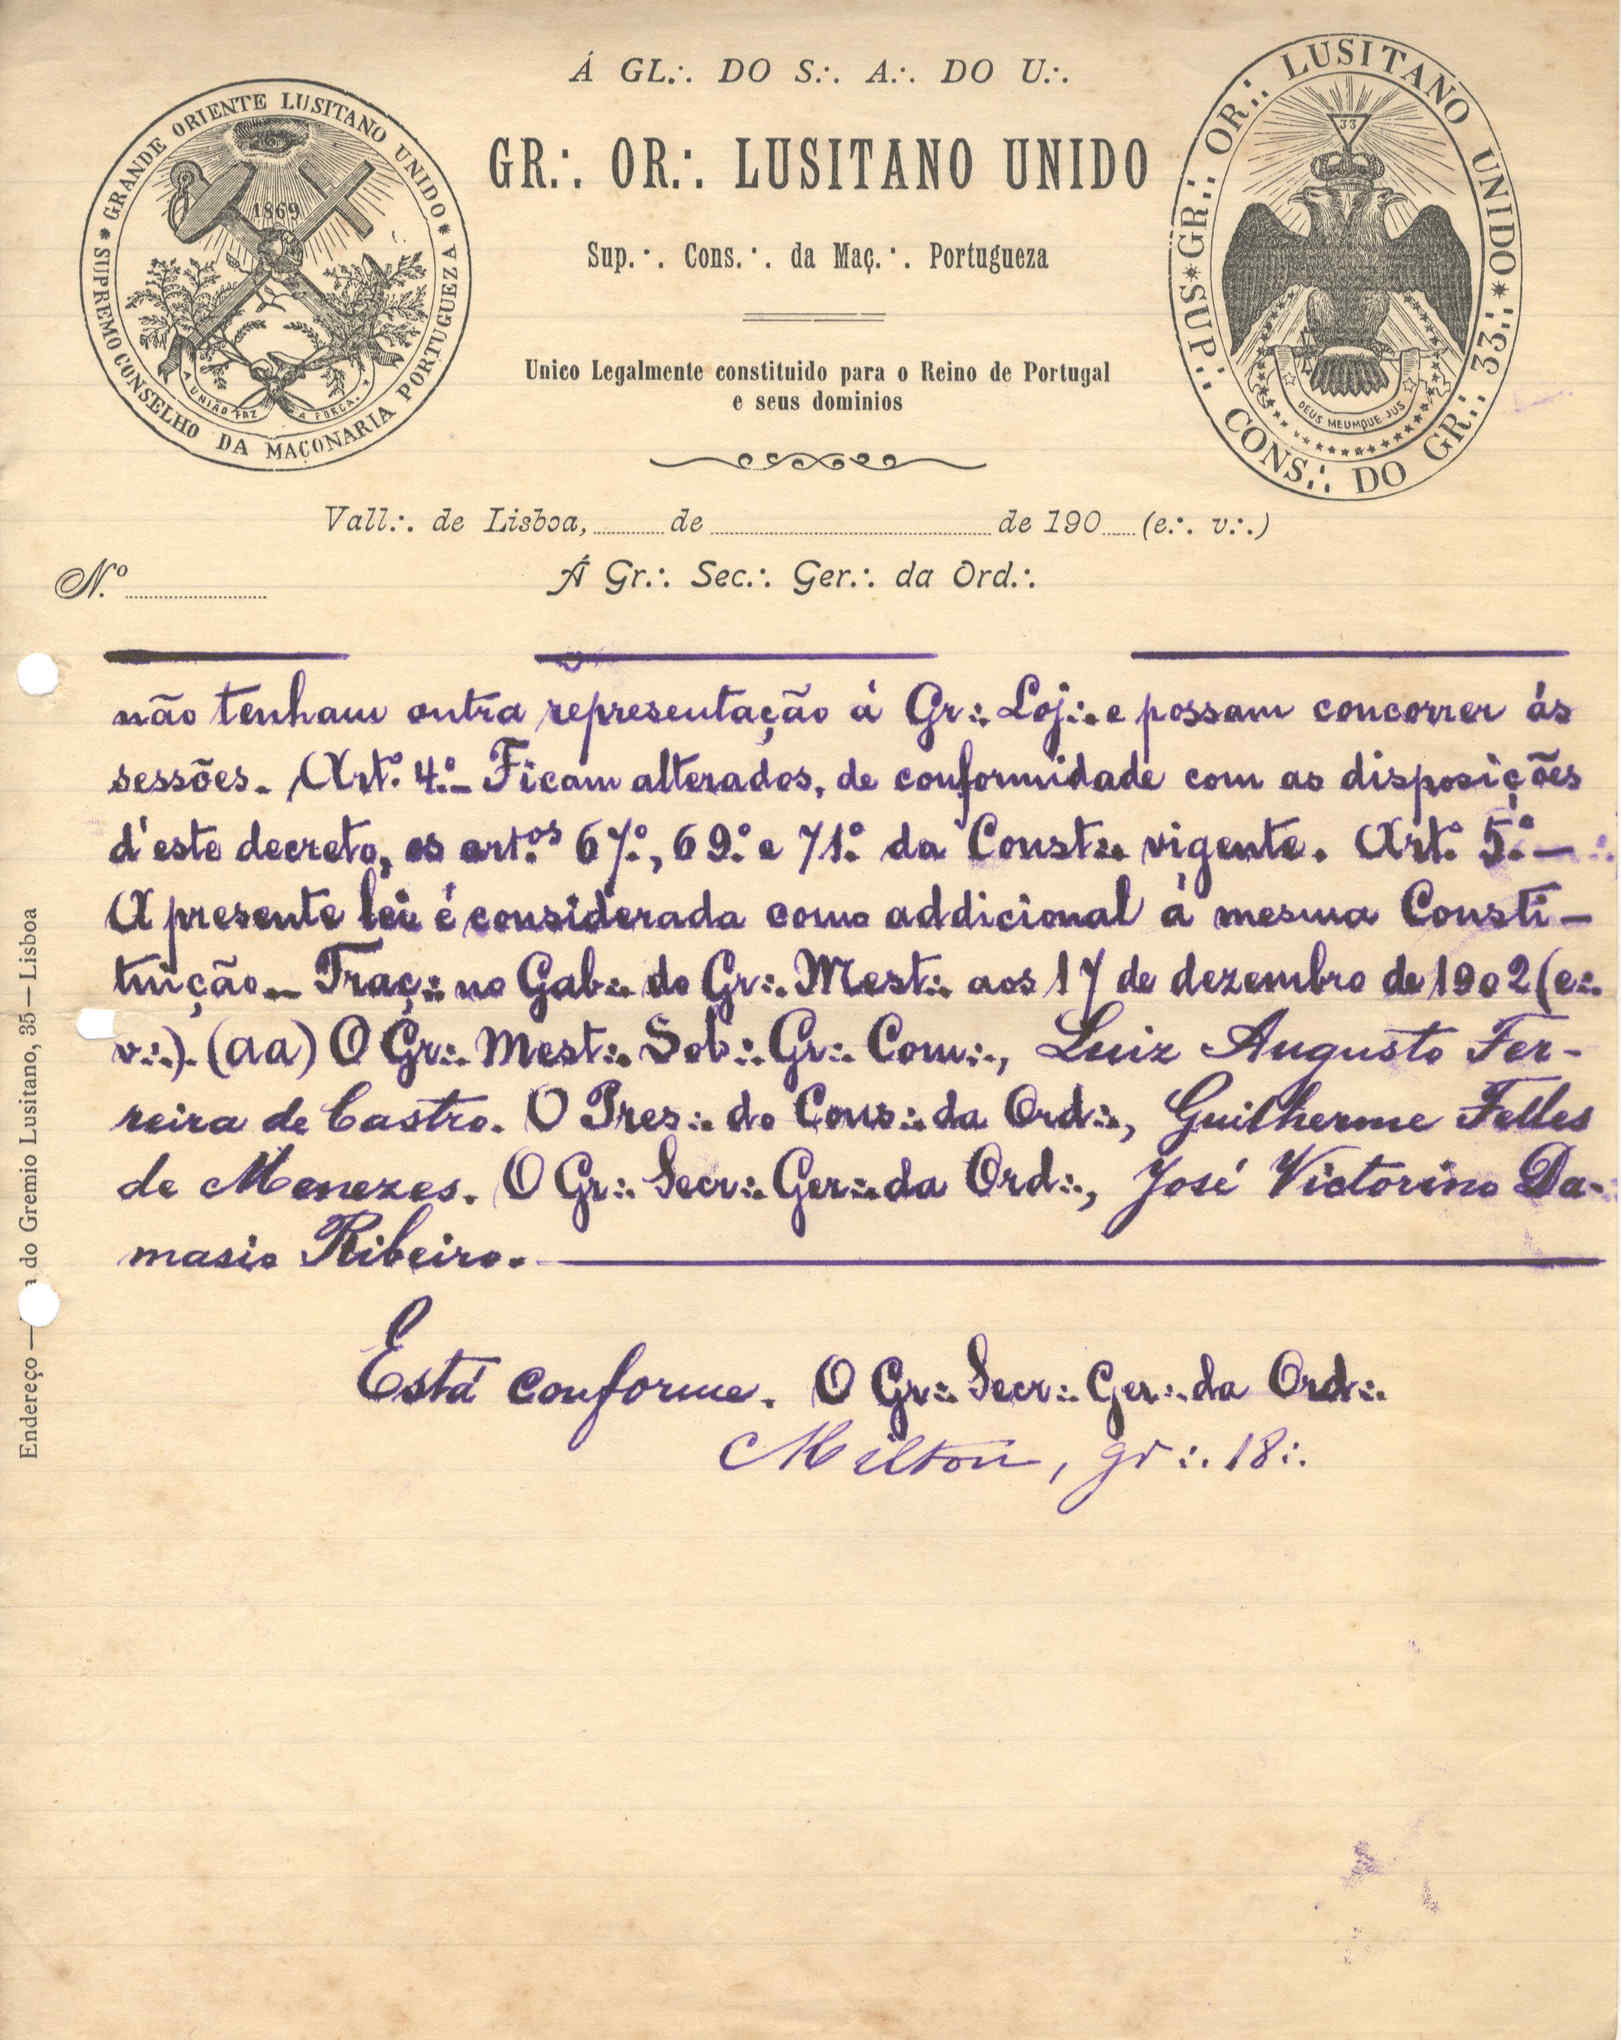 Á GL.·. DO S.·. A.·. DO U.·.
GR.·. OR.·. LUSITANO UNIDO
Sup.·. Cons.·. da Maç.·. Portugueza
Unico Legalmente constituido para o Reino de Portugal
e seus dominios
* GRANDE ORIENTE LUSITANO UNIDO *
SUPREMO CONSELHO DA MAÇONARIA PORTUGUEZA
1869
A UNIÃO FAZ A FORÇA.
GR.·. OR.·. LUSITANO UNIDO *
SUP.·. CONS.·. DO GR.·. 33.·. *
33
DEUS MEUMQUE JUS
Vall.·. de Lisboa, de de 190 (e.·. v.·.)
N.º
Á Gr.·. Sec.·. Ger.·. da Ord.·.
não tenham outra representação á Gr.·. Loj.·. e possam concorrer ás
sessões. Art.º 4.º– Ficam alterados, de conformidade com as disposições
d'este decreto, os art.os 67.º, 69.º e 71.º da Const.·. vigente. Art.º 5.º–
A presente lei é considerada como addicional á mesma Consti-
tuição– Traç.·. no Gab.·. do Gr.·. Mest.·. aos 17 de dezembro de 1902 (e.·.
v.·.). (aa) O Gr.·. Mest.·. Sob.·. Gr.·. Com.·., Luiz Augusto Fer-
reira de Castro. O Pres.·. do Cons.·. da Ord.·., Guilherme Telles
de Menezes. O Gr.·. Secr.·. Ger.·. da Ord.·., José Victorino Da-
masio Ribeiro.
Está conforme. O Gr.·. Secr.·. Ger.·. da Ord.·.
Milton, gr.·. 18.·.
Endereço — do Gremio Lusitano, 35 — Lisboa